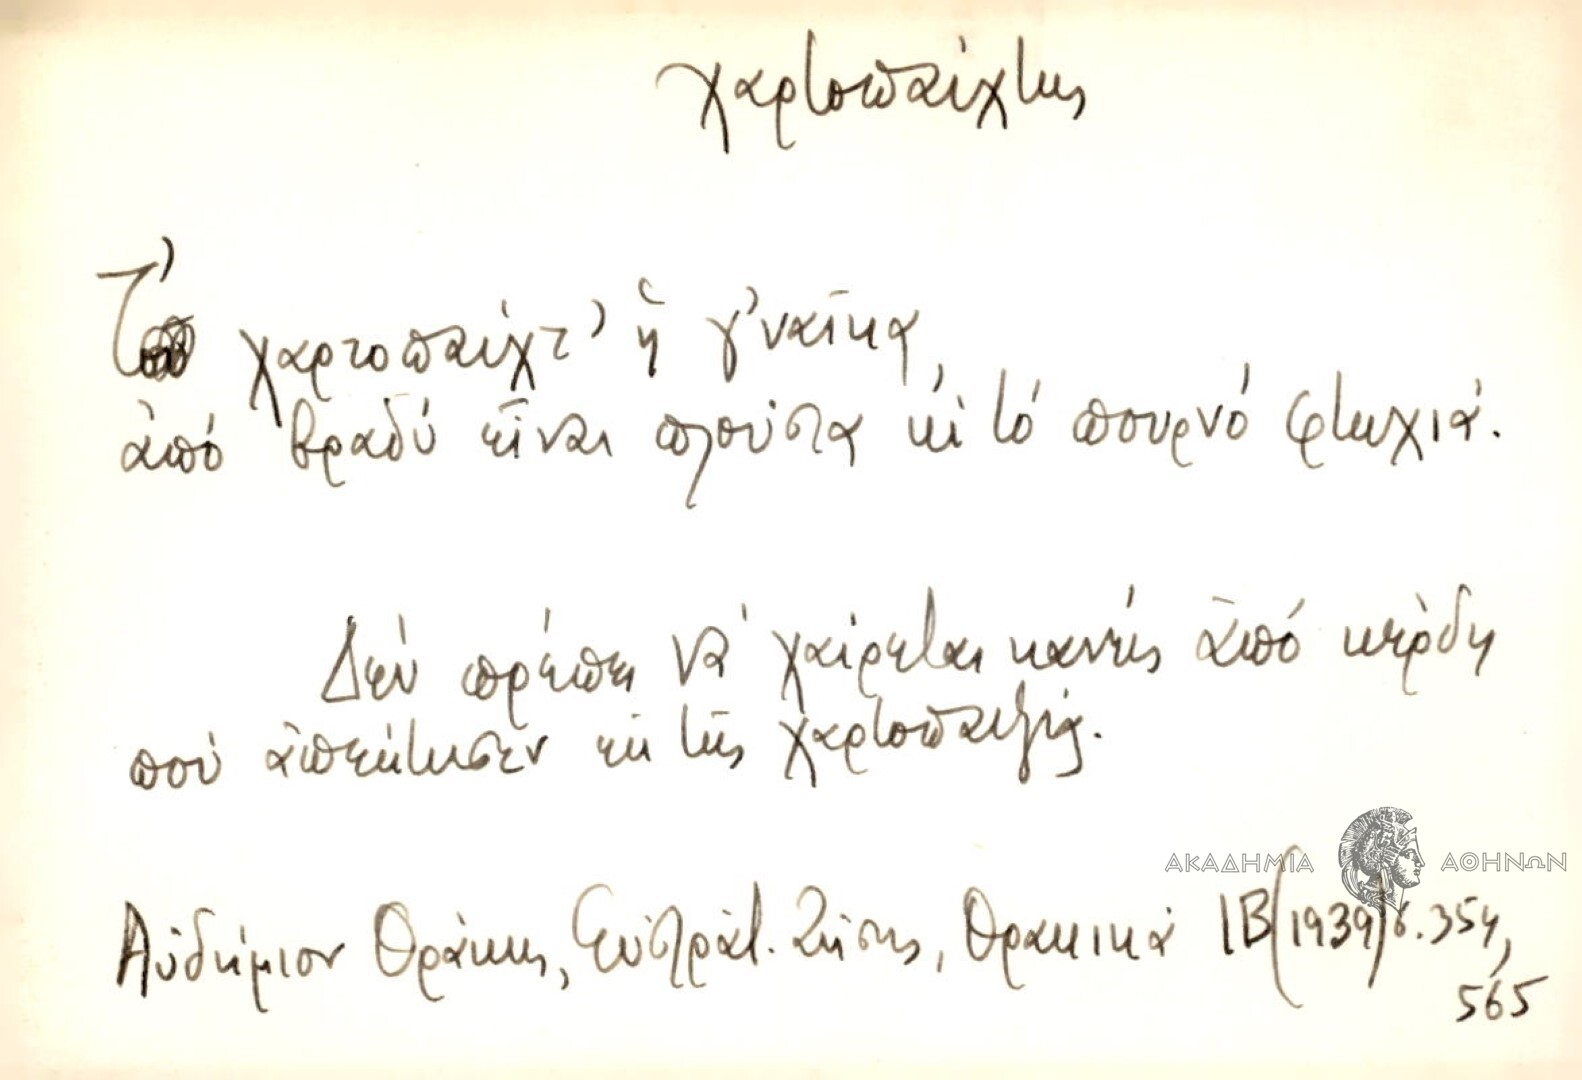 χαρτοπαίχτης
Τ' χαρτοπαίχτ' ἡ γ'ναῖκα
ἀπό βραδύ εἶναι πλούσια κι τό πουρνό φτωχιά.
Δέν πρέπει νά χαίρεται κανείς ἀπό κέρδη
πού ἀπέκτησεν ἐκ τῆς χαρτοπαιξίας.
Αὐδήμιον Θράκης, Εὐστράτ. Ζήσης, Θρακικά ΙΒ (1939) σ. 354,
565
ΑΚΑΔΗΜΙΑ ΑΘΗΝΩΝ